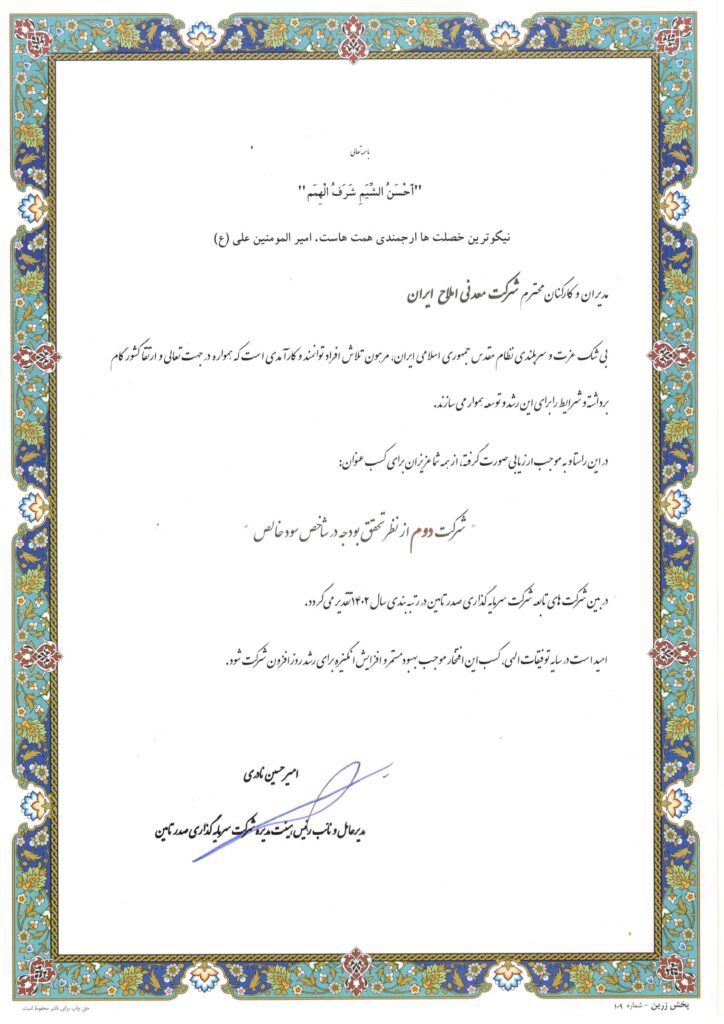 باسمه تعالی
"اَحْسَنُ الشِّیَمِ شَرَفُ الْهِمَم"
نیکوترین خصلت ها ارجمندی همت هاست. امیر المومنین علی (ع)
مدیران و کارکنان محترم شرکت معدنی املاح ایران
بی شک عزت و سربلندی نظام مقدس جمهوری اسلامی ایران، مرهون تلاش افراد توانمند و کارآمدی است که همواره در جهت تعالی و ارتقا کشور گام
برداشته و شرایط را برای این رشد و توسعه هموار می سازند.
در این راستا و به موجب ارزیابی صورت گرفته، از همه شما عزیزان برای کسب عنوان:
" شرکت دوم از نظر تحقق بودجه در شاخص سود خالص "
در بین شرکت های تابعه شرکت سرمایه گذاری صدر تامین در رتبه بندی سال ۱۴۰۲ تقدیر می گردد.
امید است در سایه توفیقات الهی، کسب این افتخار موجب بهبود مستمر و افزایش انگیزه برای رشد روز افزون شرکت شود.
امیرحسین نادری
مدیرعامل و نائب رئیس هیئت مدیره شرکت سرمایه گذاری صدر تامین
پخش زرین - شماره ۱۰۹
حق چاپ برای ناشر محفوظ است.